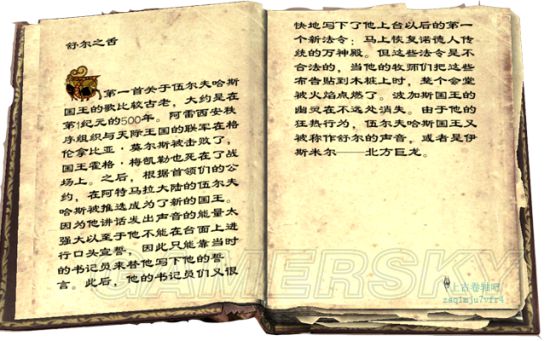 舒尔之舌
第一首关于伍尔夫哈斯
国王的歌比较古老，大约是在
第1纪元的500年。阿雷西安秩
序组织与天际王国的联军在格
伦拿比亚·莫尔斯被击败了，
国王霍格·梅凯勒也死在了战
场上。之后，根据首领们的公
约，在阿特马拉大陆的伍尔夫
哈斯被推选成为了新的国王。
因为他讲话发出声音的能量太
强大以至于他不能在台面上进
行口头宣誓，因此只能靠当时
的书记员来替他写下他的誓
言。此后，他的书记员们又很
快地写下了他上台以后的第一
个新法令：马上恢复诺德人传
统的万神殿。但这些法令是不
合法的，当他的牧师们把这些
布告贴到木桩上时，整个会堂
被火焰点燃了。波加斯国王的
幽灵在不远处消失。由于他的
狂热行为，伍尔夫哈斯国王又
被称作舒尔的声音，或者是伊
斯米尔——北方巨龙。
GAMERSKY
上古卷轴吧
zaq1mju7vfr4